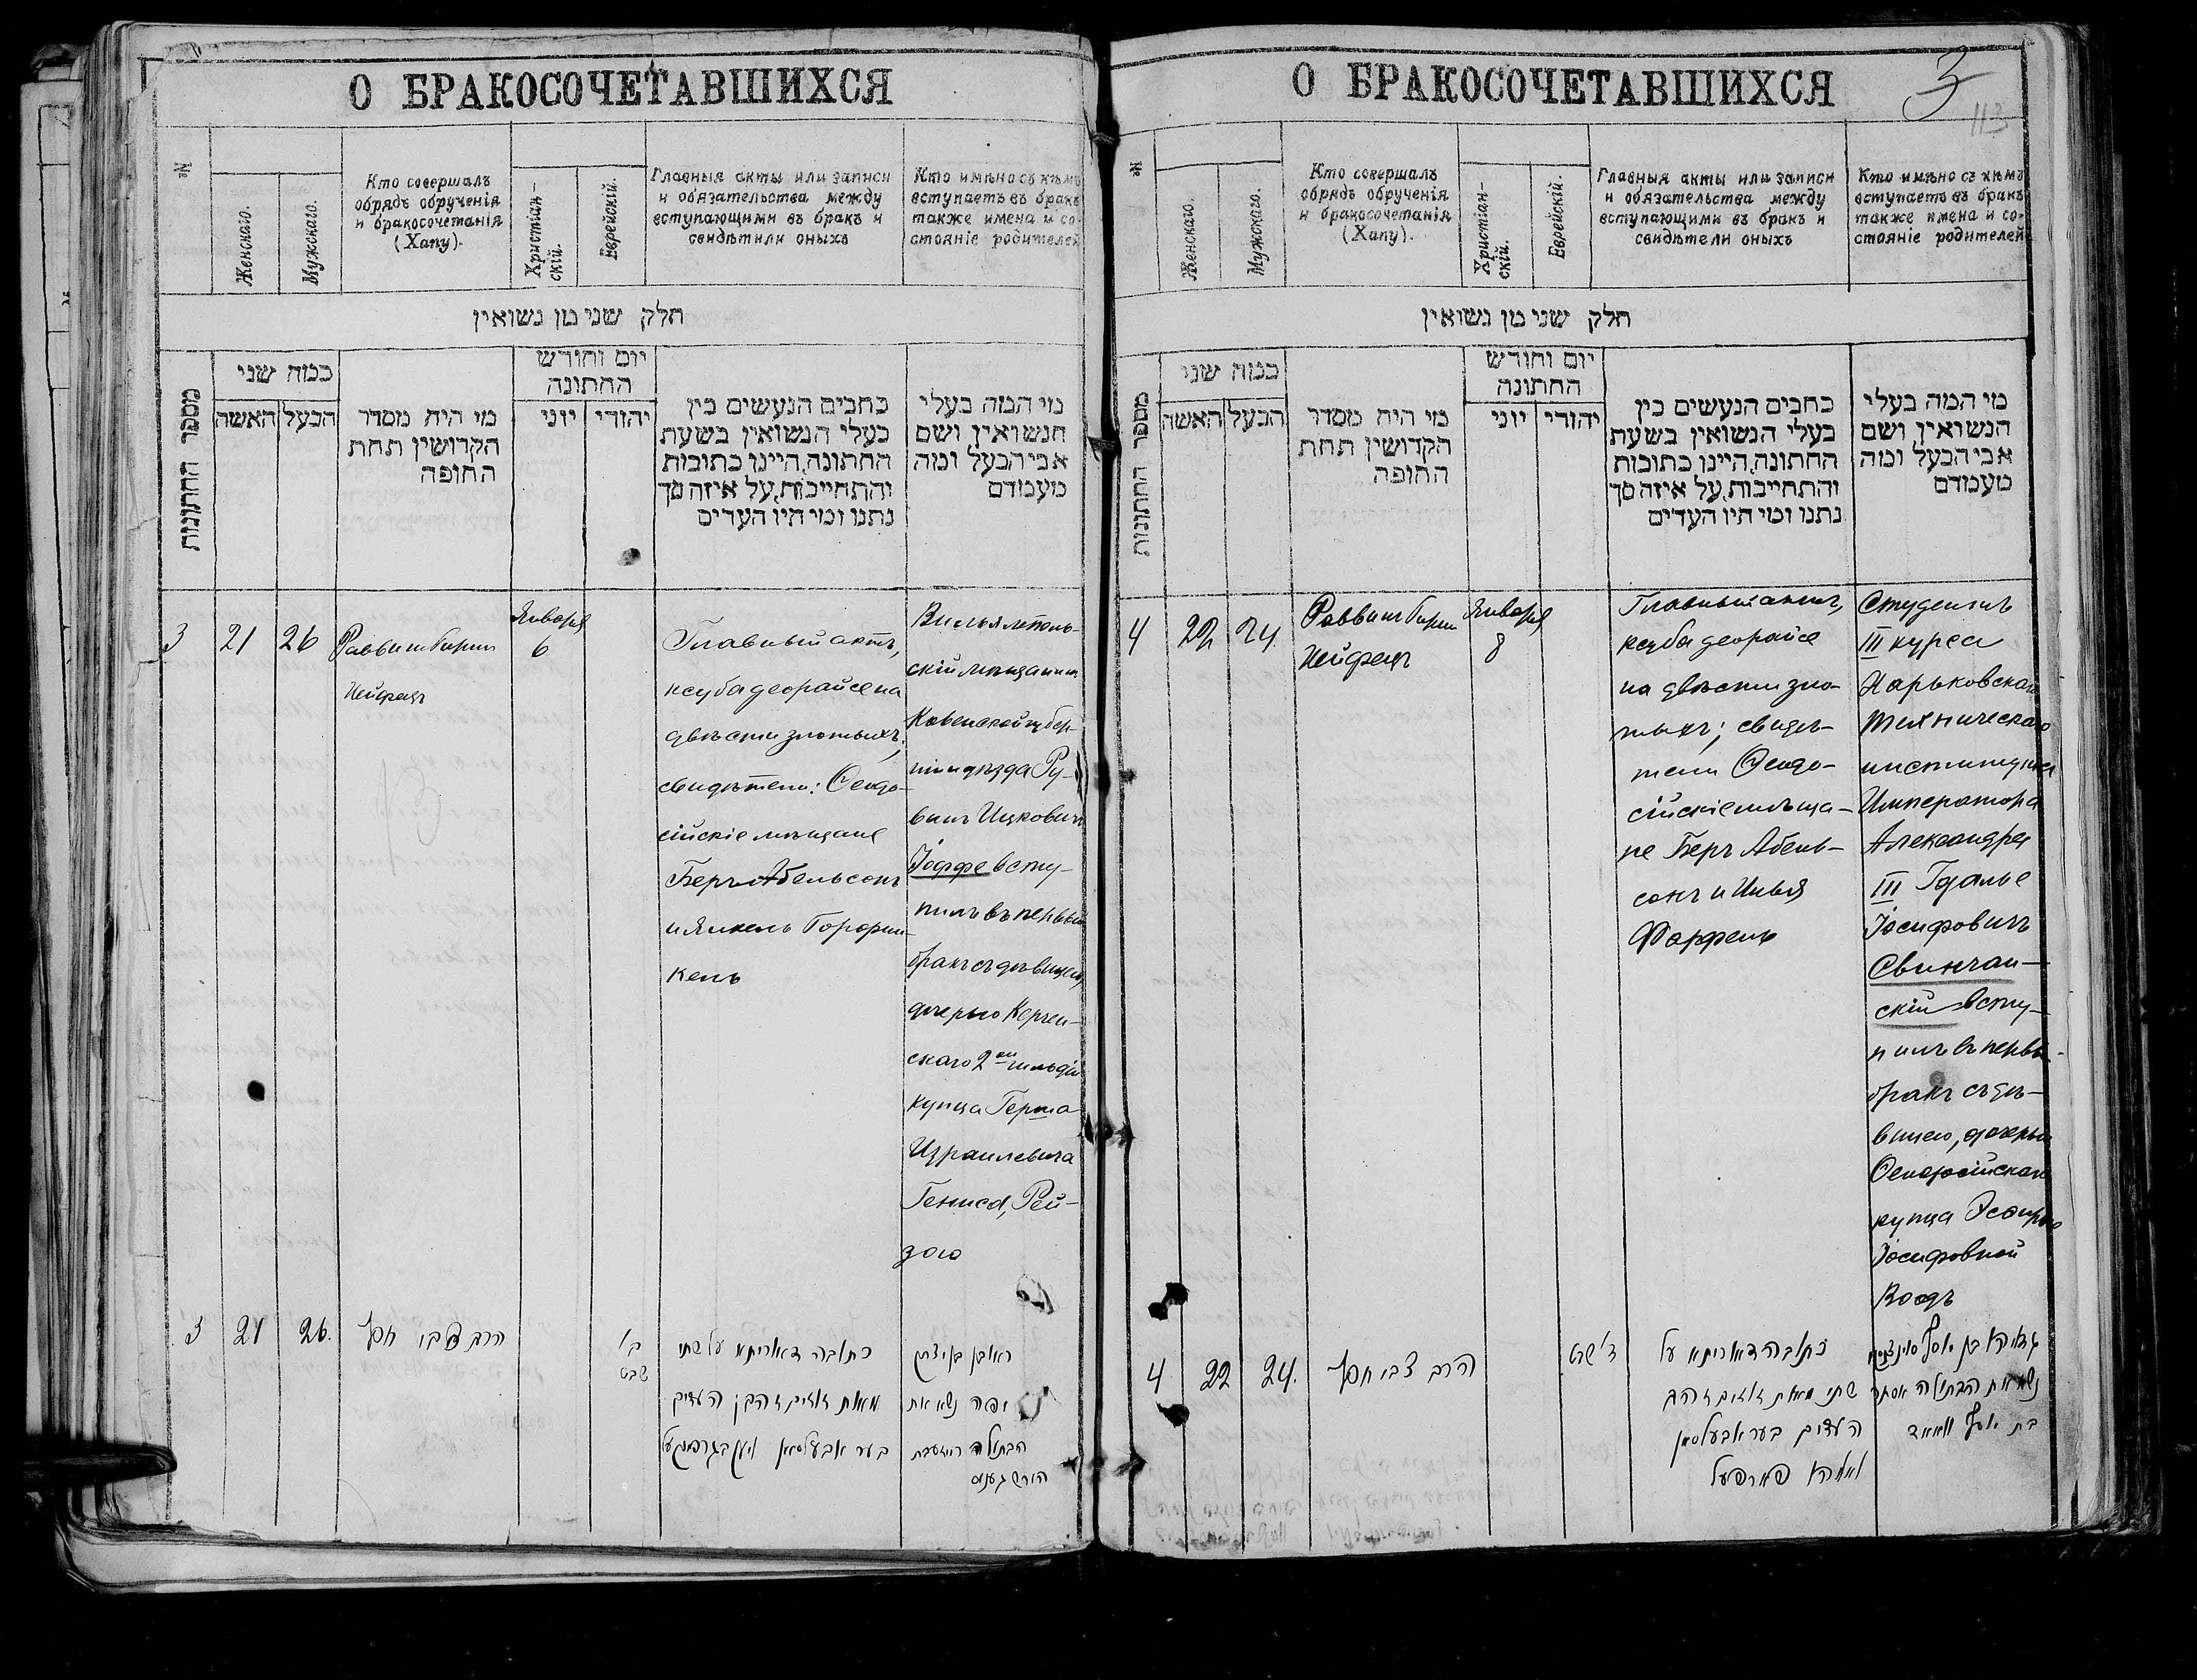 О БРАКОСОЧЕТАВШИХСЯ
№
Женскаго.
Мужскаго.
Кто совершалъ
обрядъ обрученія
и бракосочетанія
(Хапу).
Христіан-
скій.
Еврейскій.
Главныя акты или записи
и обязательства между
вступающими въ бракъ и
свидѣтили оныхъ
Кто имѣно съ кѣмъ
вступаетъ въ бракъ
также имена и со-
стояніе родителей
חלק שני מן נשואין
מספר החתונות
כמה שני
האשה
הבעל
מי היה מסדר
הקדושין תחת
החופה
יום וחודש
החתונה
יוני
יהודי
כתבים הנעשים בין
בעלי הנשואין בשעת
החתונה, היינו כתובות
והתחייבות, על איזה סך
נתנו ומי היו העדים
מי המה בעלי
הנשואין ושם
אבי הבעל ומה
מעמדם
3
21
26
Раввинъ
Января
6
Главный актъ,
ксуба деорайсе на
двѣсти злотыхъ;
свидѣтели: Ѳеодо-
сійскіе мѣщане
Беръ Абельсонъ
и
кель
Вилькомѣрь-
скій мѣщанинъ
Ковенской губер-
ніи уѣзда Ру-
винъ Ицковичъ
Іоффе всту-
пилъ въ первый
бракъ съ дѣвицею,
дочерью Керчен-
скаго 2ой гильдіи
купца Герша
Израилевича
Гениса, Рей-
зою
3
21
26.
הרב צבי חפץ
ב'
שבט
כתובה דאוריתא על שתי
מאות זוזים והעדים
בער אבעלסאן
ראובן בן יצחק
יופה נשא את
הבתולה
הירש גענוס
О БРАКОСОЧЕТАВШИХСЯ
3
113
№
Женскаго.
Мужскаго.
Кто совершалъ
обрядъ обрученія
и бракосочетанія
(Хапу).
Христіан-
скій.
Еврейскій.
Главныя акты или записи
и обязательства между
вступающими въ бракъ и
свидѣтели оныхъ
Кто имѣно съ кѣмъ
вступаетъ въ бракъ
также имена и со-
стояніе родителей
חלק שני מן נשואין
מספר החתונות
כמה שני
האשה
הבעל
מי היה מסדר
הקדושין תחת
החופה
יום וחודש
החתונה
יוני
יהודי
כתבים הנעשים בין
בעלי הנשואין בשעת
החתונה, היינו כתובות
והתחייבות, על איזה סך
נתנו ומי היו העדים
מי המה בעלי
הנשואין ושם
אבי הבעל ומה
מעמדם
4
22
24.
Раввинъ
Января
8
Главный актъ,
ксуба деорайсе
на двѣсти зло-
тыхъ; свидѣ-
тели Ѳеодо-
сійскіе мѣща-
не Беръ Абель-
сонъ и Илья
Фарфель
Студентъ
III курса
Харьковскаго
технического
института
Императора
Александра
III Гдалье
Іосифовичъ
Свинчан-
скій всту-
пилъ въ первый
бракъ съ дѣ-
вицею, дочерью
Ѳеодосійскаго
купца Эсѳирью
Іосифовной
Воодъ
4
22
24.
הרב צבי חפץ
ד' שבט
כתובה דאוריתא על
שתי מאות זוזים
העדים בער אבעלסאן
ואליהו פארפעל
גדליהו בן יוסף
נשא את הבתולה אסתר
בת יוסף